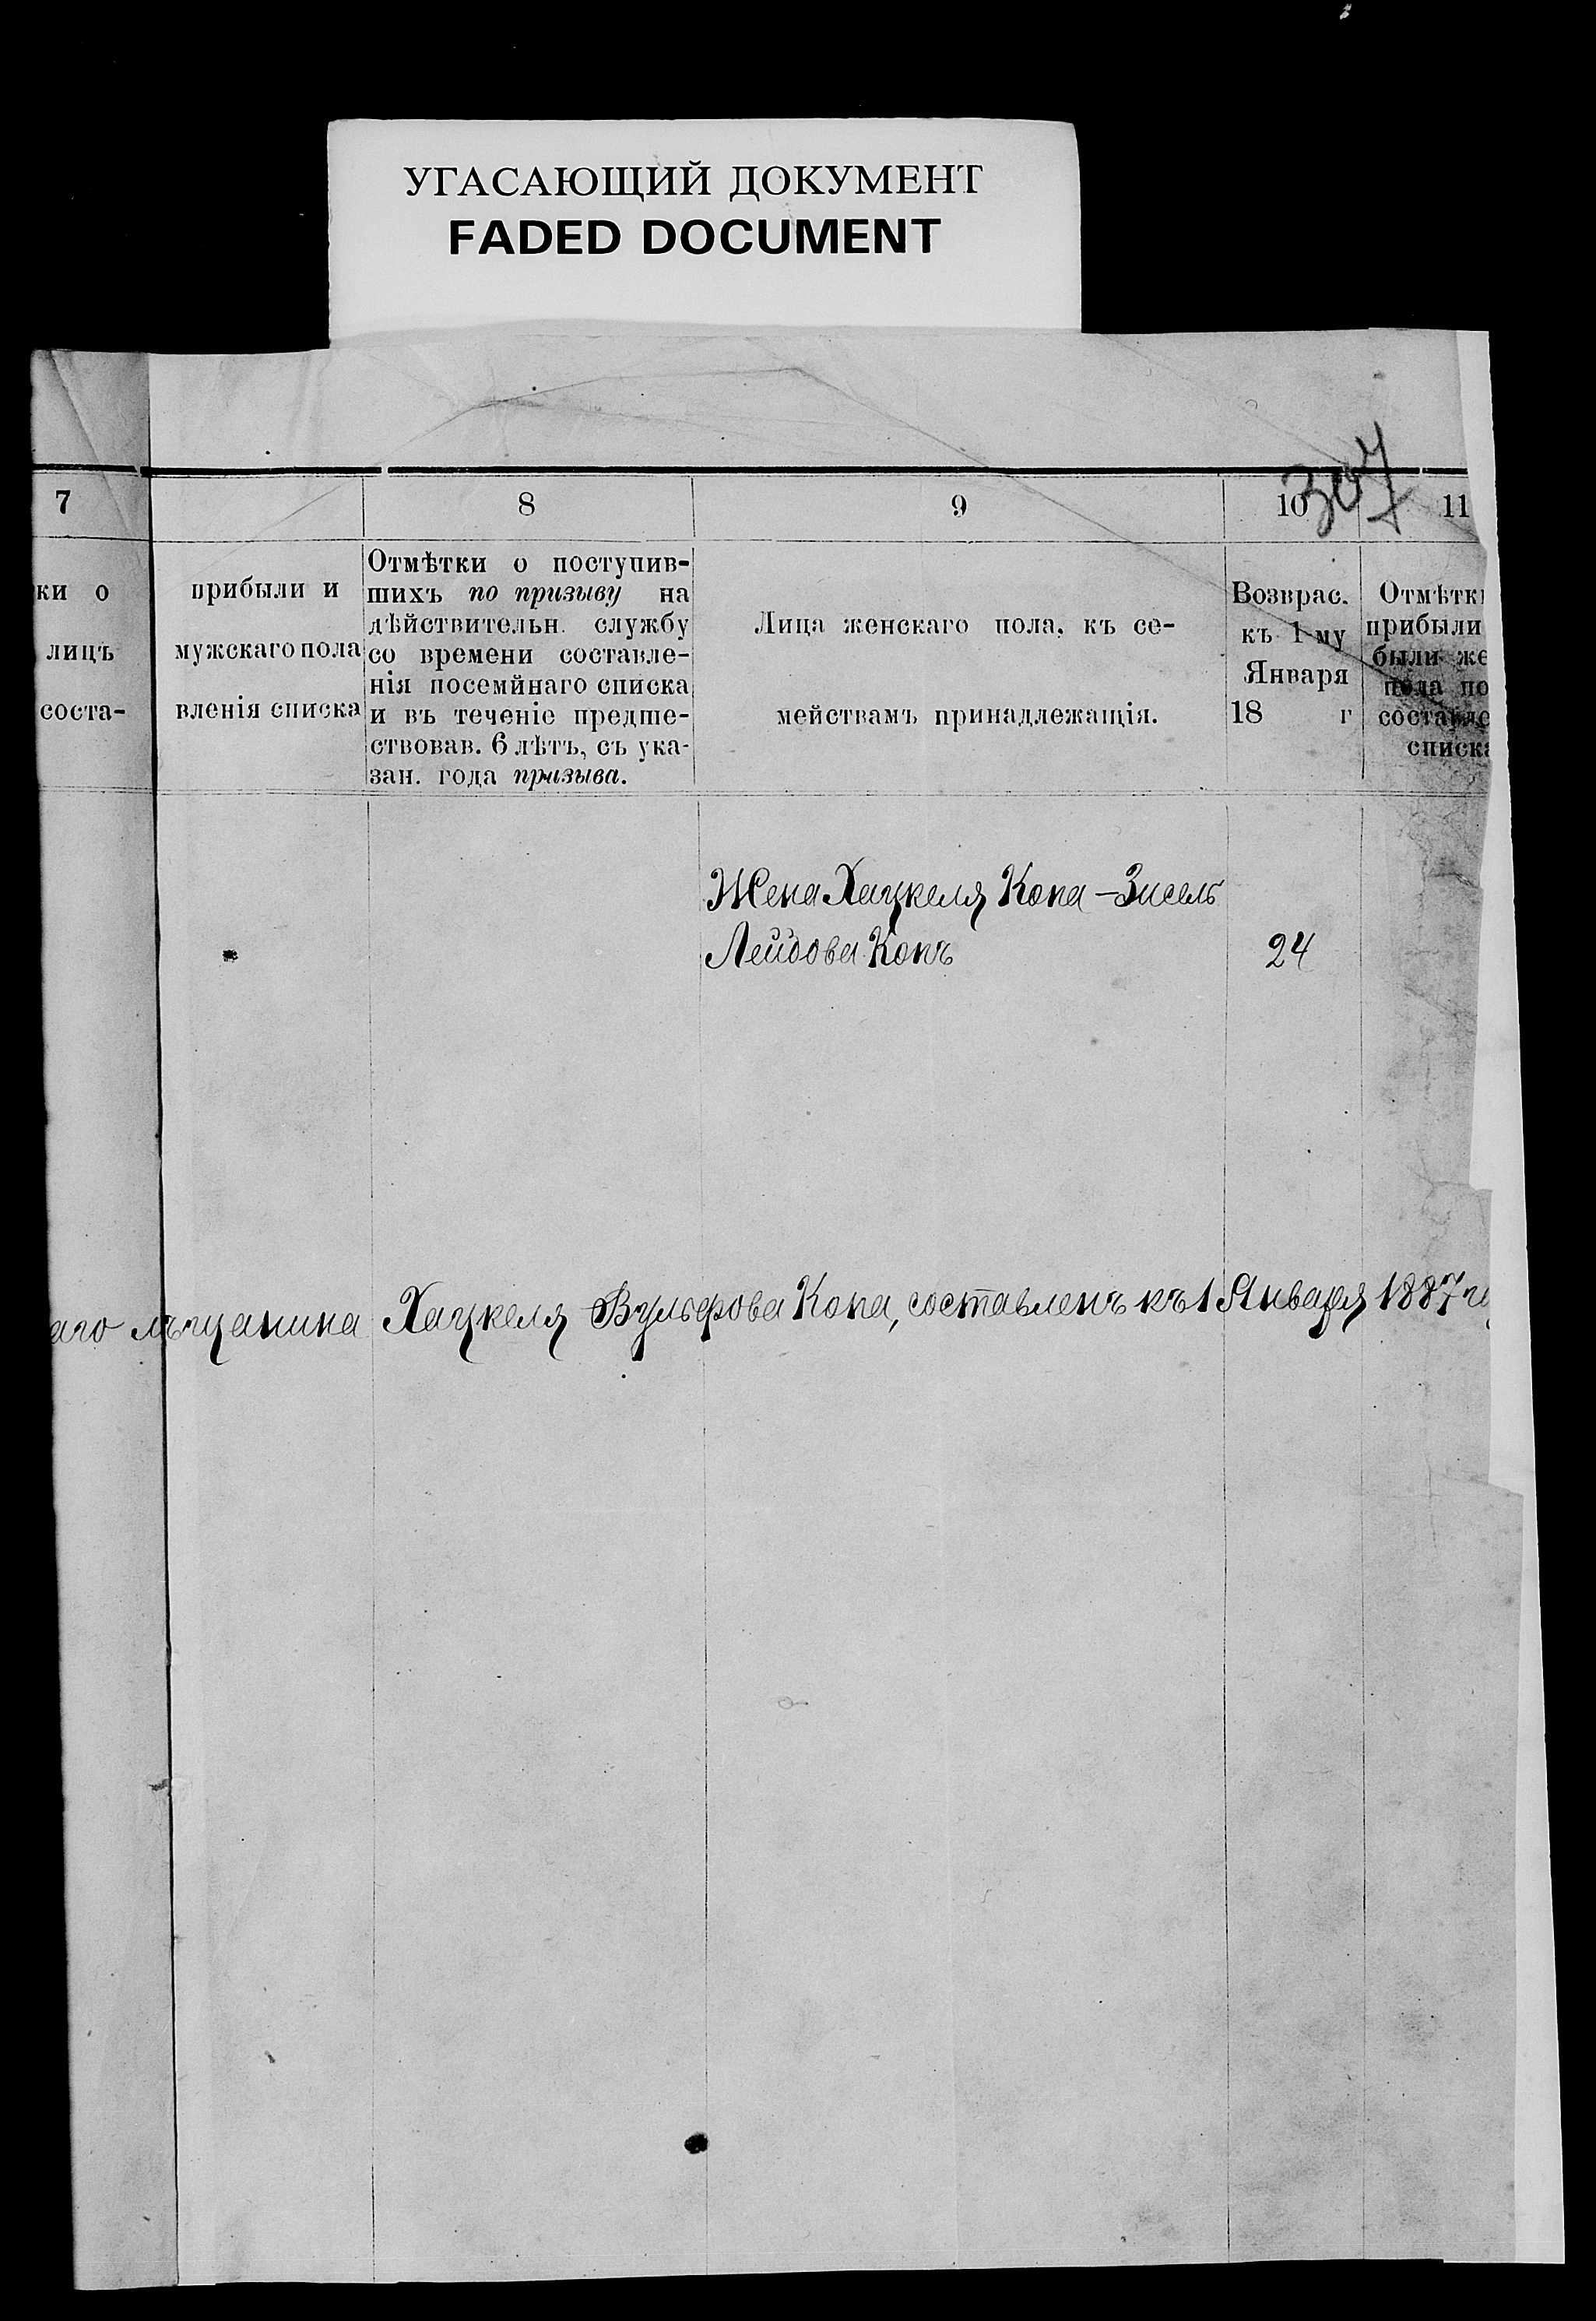 УГАСАЮЩИЙ ДОКУМЕНТ
FADED DOCUMENT
307
7
8
9
10
11
ки о
лицъ
соста-
прибыли и
мужскаго пола
вленія списка
Отмѣтки о поступив-
шихъ по призыву на
дѣйствительн. службу
со времени составле-
нія посемйнаго списка
и въ теченіе предше-
ствовав. 6 лѣтъ, съ ука-
зан. года призыва.
Лица женскаго пола, къ се-
мействамъ принадлежащія.
Возврас.
къ 1-му
Января
18 г
Отмѣтки
прибыли
были же
пола по
составле
списка
Жена Хацкеля Копа - Зисель
Лейбова Копъ
24
аго мѣщанина Хацкеля Вульфова Копа, составленъ къ 1 Января 1887 г